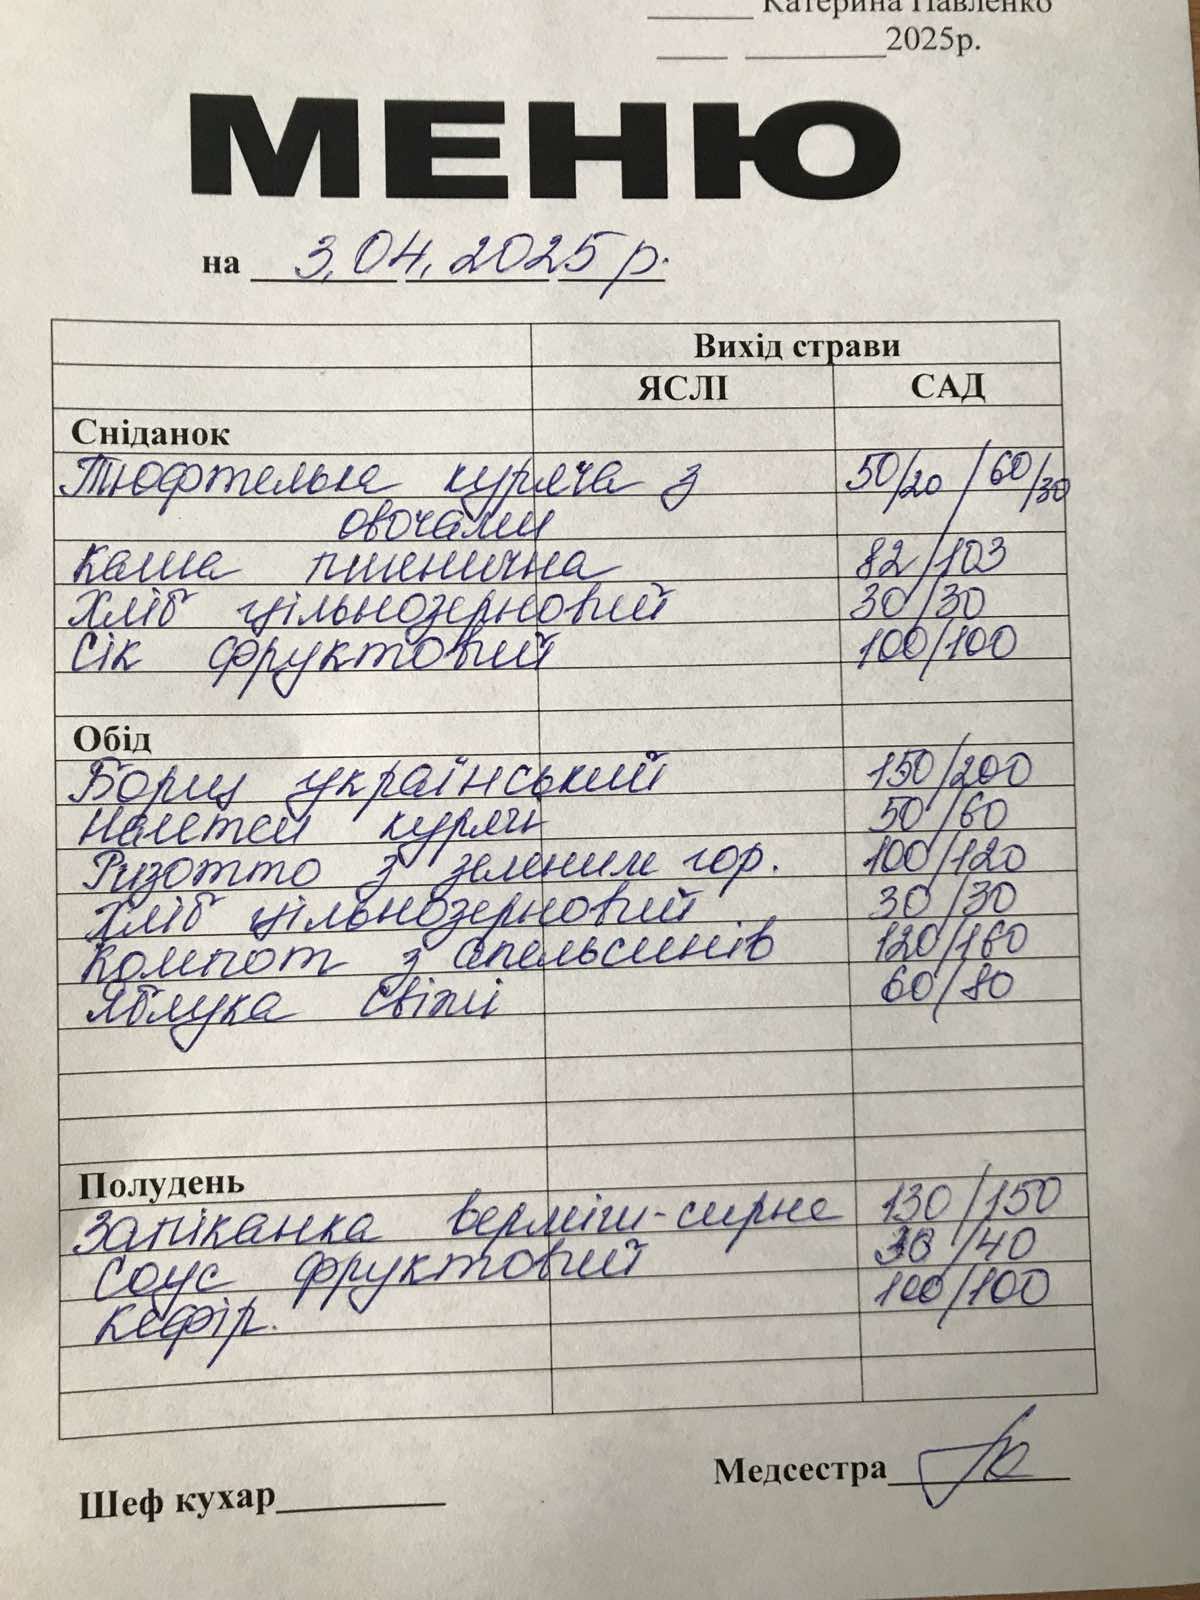 Катерина Павленко
2025р.
МЕНЮ
на 3.04.2025 р.
Вихід страви
ЯСЛІ САД
Сніданок
Тюфтелька куряча з 50/20 /60/30
овочами
Каша пшенична 82/103
Хліб цільнозерновий 30/30
Сік фруктовий 100/100
Обід
Борщ український 150/200
курячі 50/60
Ризотто з зеленим гор. 100/120
Хліб цільнозерновий 30/30
Компот з апельсинів 120/160
Яблука свіжі 60/80
Полудень
Запіканка верміш-сирна 130/150
Соус фруктовий 30/40
Кефір. 100/100
Медсестра
Шеф кухар